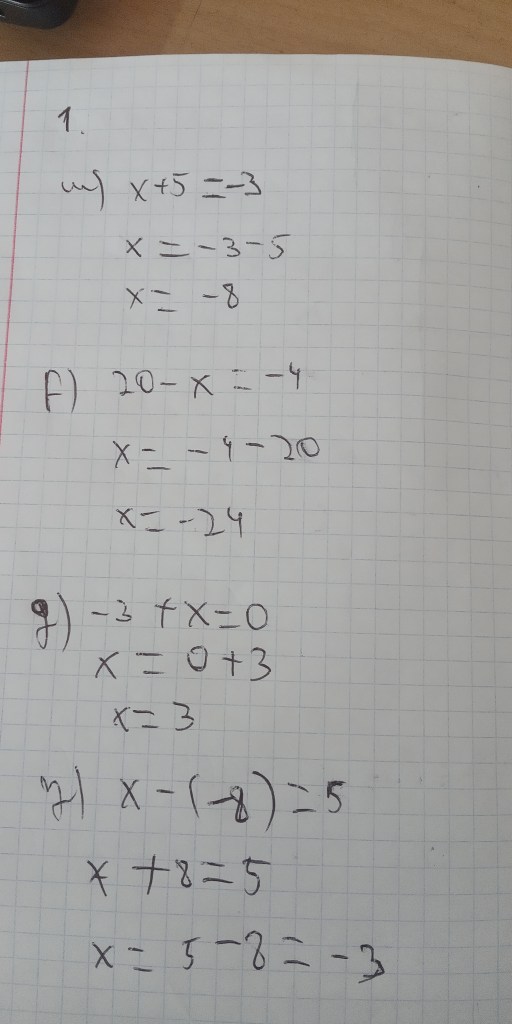 1.
m) x+5=-3
x = -3-5
x = -8
f) 20-x = -4
x = -4-20
x = -24
g) -3+x=0
x = 0+3
x = 3
x-(-8)=5
x+8=5
x = 5-8=-3